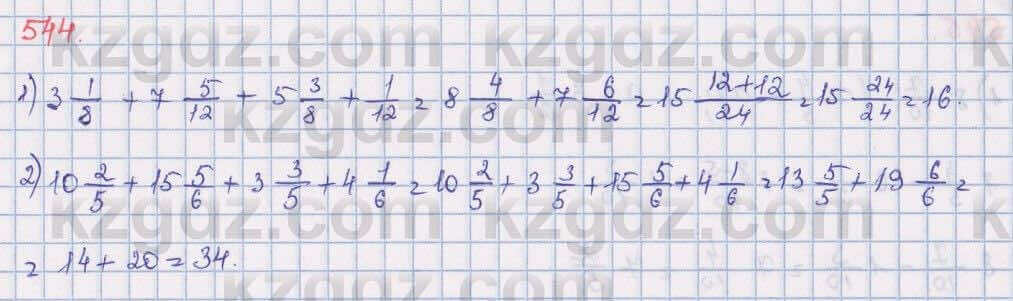 544.
1) 3 1/8 + 7 5/12 + 5 3/8 + 1/12 = 8 4/8 + 7 6/12 = 15 12+12/24 = 15 24/24 = 16.
2) 10 2/5 + 15 5/6 + 3 3/5 + 4 1/6 = 10 2/5 + 3 3/5 + 15 5/6 + 4 1/6 = 13 5/5 + 19 6/6 =
= 14 + 20 = 34.
kzgdz.com kzgdz.com
kzgdz.com kzgdz.com
kzgdz.com kzgdz.com
kzgdz.com kzgdz.com